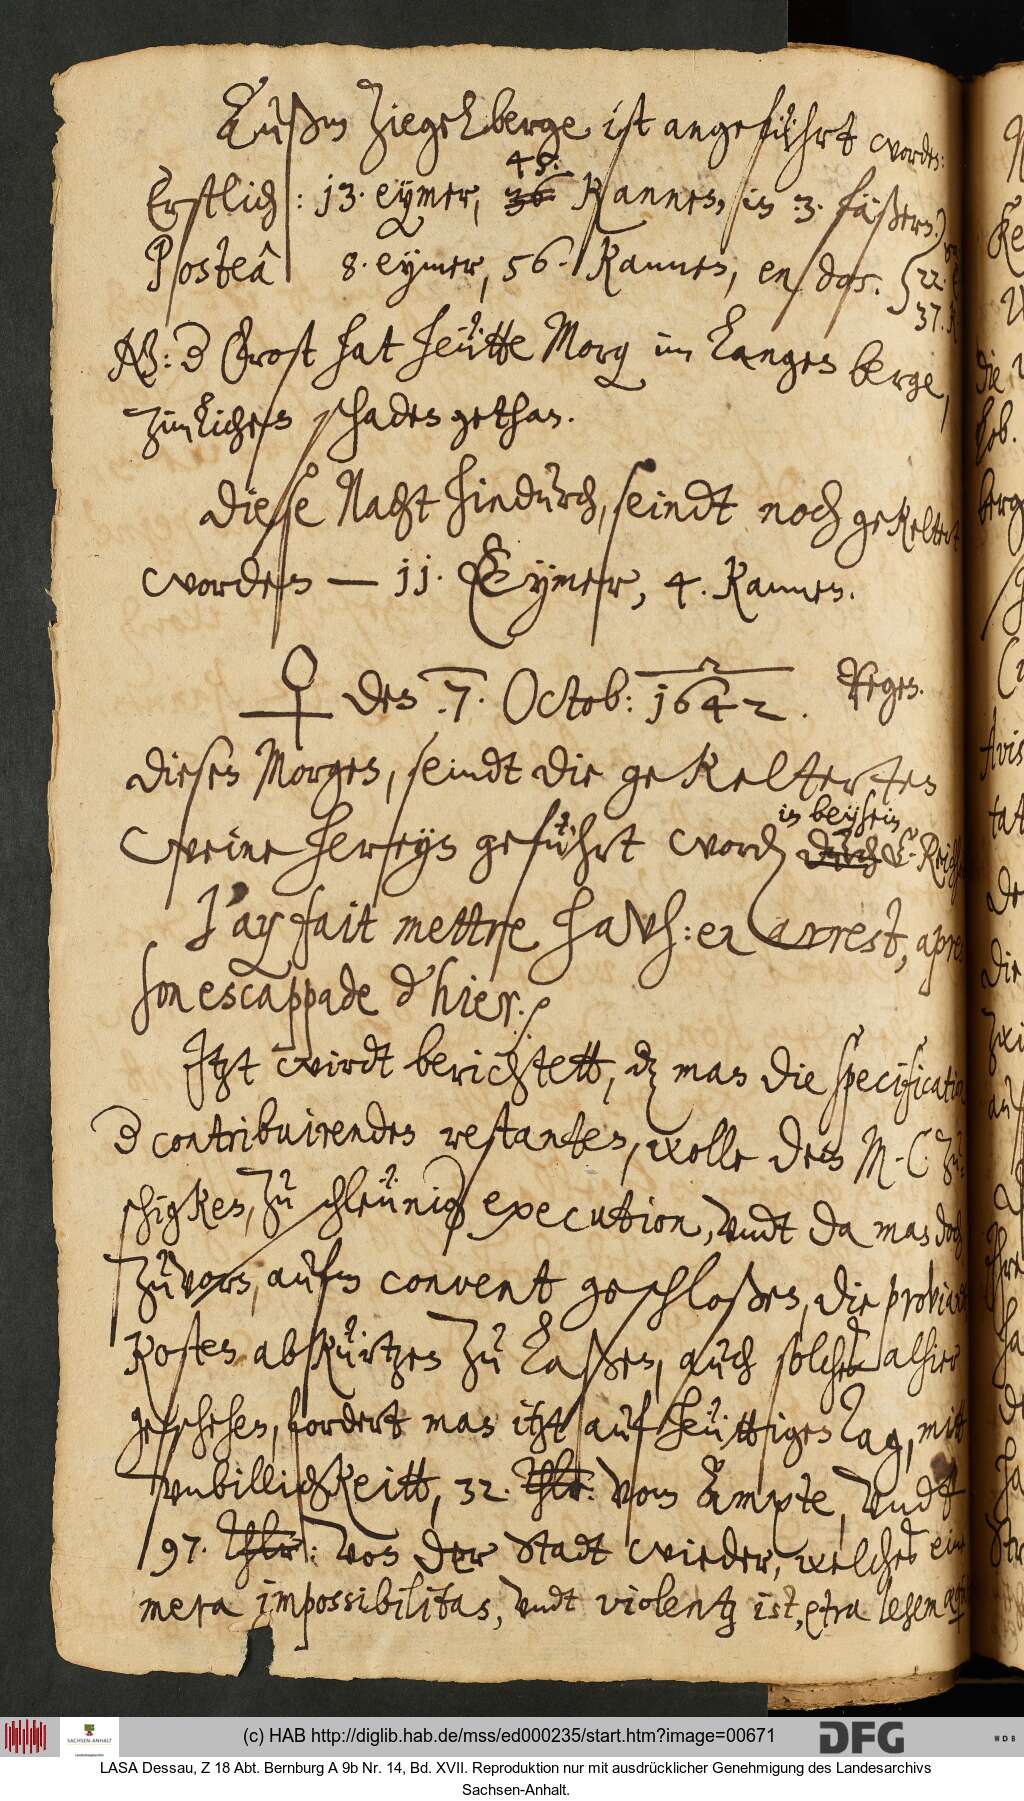 Außm Ziegelberge ist angeführt worden:
48.
Erstlich: 13. eymer, 36 Kannen, in 3. fäßern.
Posteà 8. eymer, 56. Kannen, en dos. 22.
37. K
NB: Der Frost hat heütte Morg im Langen berge,
zimlichen schaden gethan.
Diese Nacht hindurch, seindt noch gekeltert
worden — 11. Eymer, 4. Kannen.
♀ den 7. Octob: 1642. Regen.
Diesen Morgen, seindt die gekelterten
in beysein
Weine hereyn geführt word durch C. Reich
J'ay fait mettre en arrest, apres
son escappade d'hier.
Itzt wirdt berichtett, dz man die specification
der contribuirenden restanten, wolle dem M. C. zu
schigken, zu schleüniger execution, undt da man doch
zuvorn, aufm convent geschloßen, die proviandt
Kosten abkürtzen zu laßen, auch solches alhier
geschehen, fordert man itzt auf heüttigen Tag, mitt
unbillichkeitt, 32. Thlr: vom Ampte, undt
97. Thlr: von der Stadt wieder, welches eine
mera impossibilitas, undt violentz ist, etra legem
(c) HAB http://diglib.hab.de/mss/ed000235/start.htm?image=00671
DFG
WDB
SACHSEN-ANHALT
LASA Dessau, Z 18 Abt. Bernburg A 9b Nr. 14, Bd. XVII. Reproduktion nur mit ausdrücklicher Genehmigung des Landesarchivs
Sachsen-Anhalt.